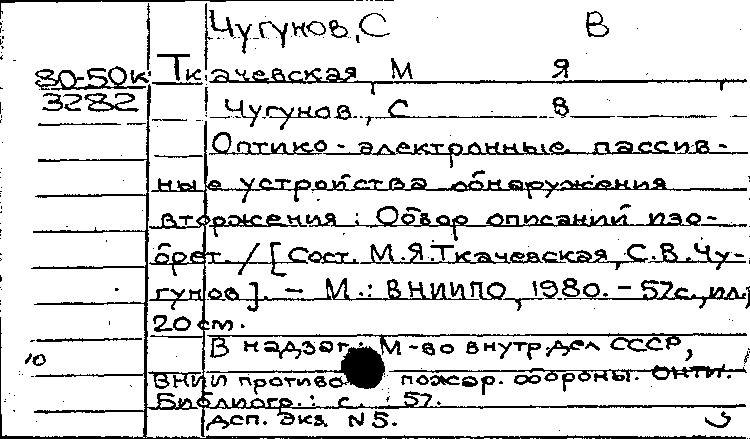 Чугунов, С В
80-50к Ткачевская, М Я
3282 Чугунов, С В
Оптико-электронные пассив-
ные устройства обнаружения
вторжения: Обзор описаний изо-
брет. / [Сост. М.Я.Ткачевская, С.В.Чу-
гунов]. – М.: ВНИИПО, 1980. – 57с., ил.;
20 см.
В надзаг.: М-во внутр.дел СССР,
10
ВНИИ противо пожар. обороны. ОНТИ.
Библиогр.: с. 57.
ДСП. Экз N 5.